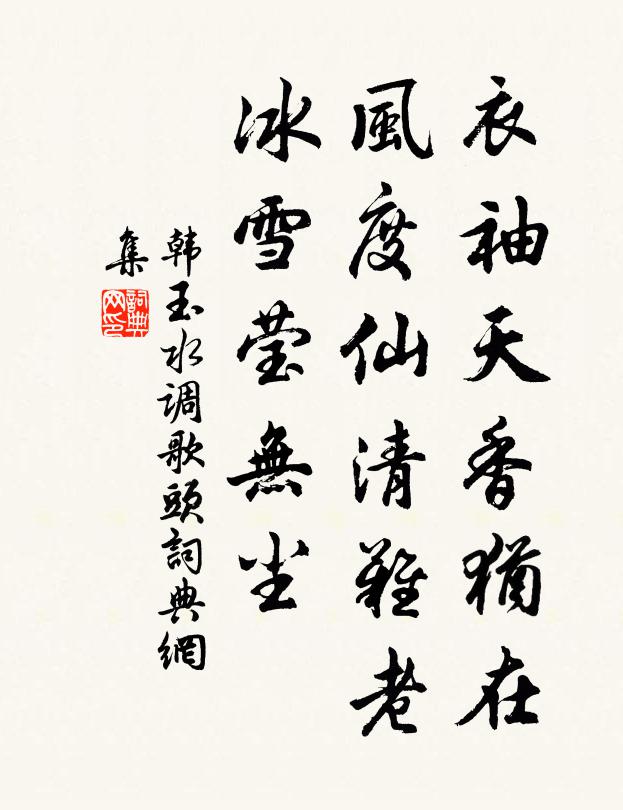 衣袖天香猶在
風度仙清難老
冰雪莹無尘
韩玉水调歌頭詞典網
集
詞典網印